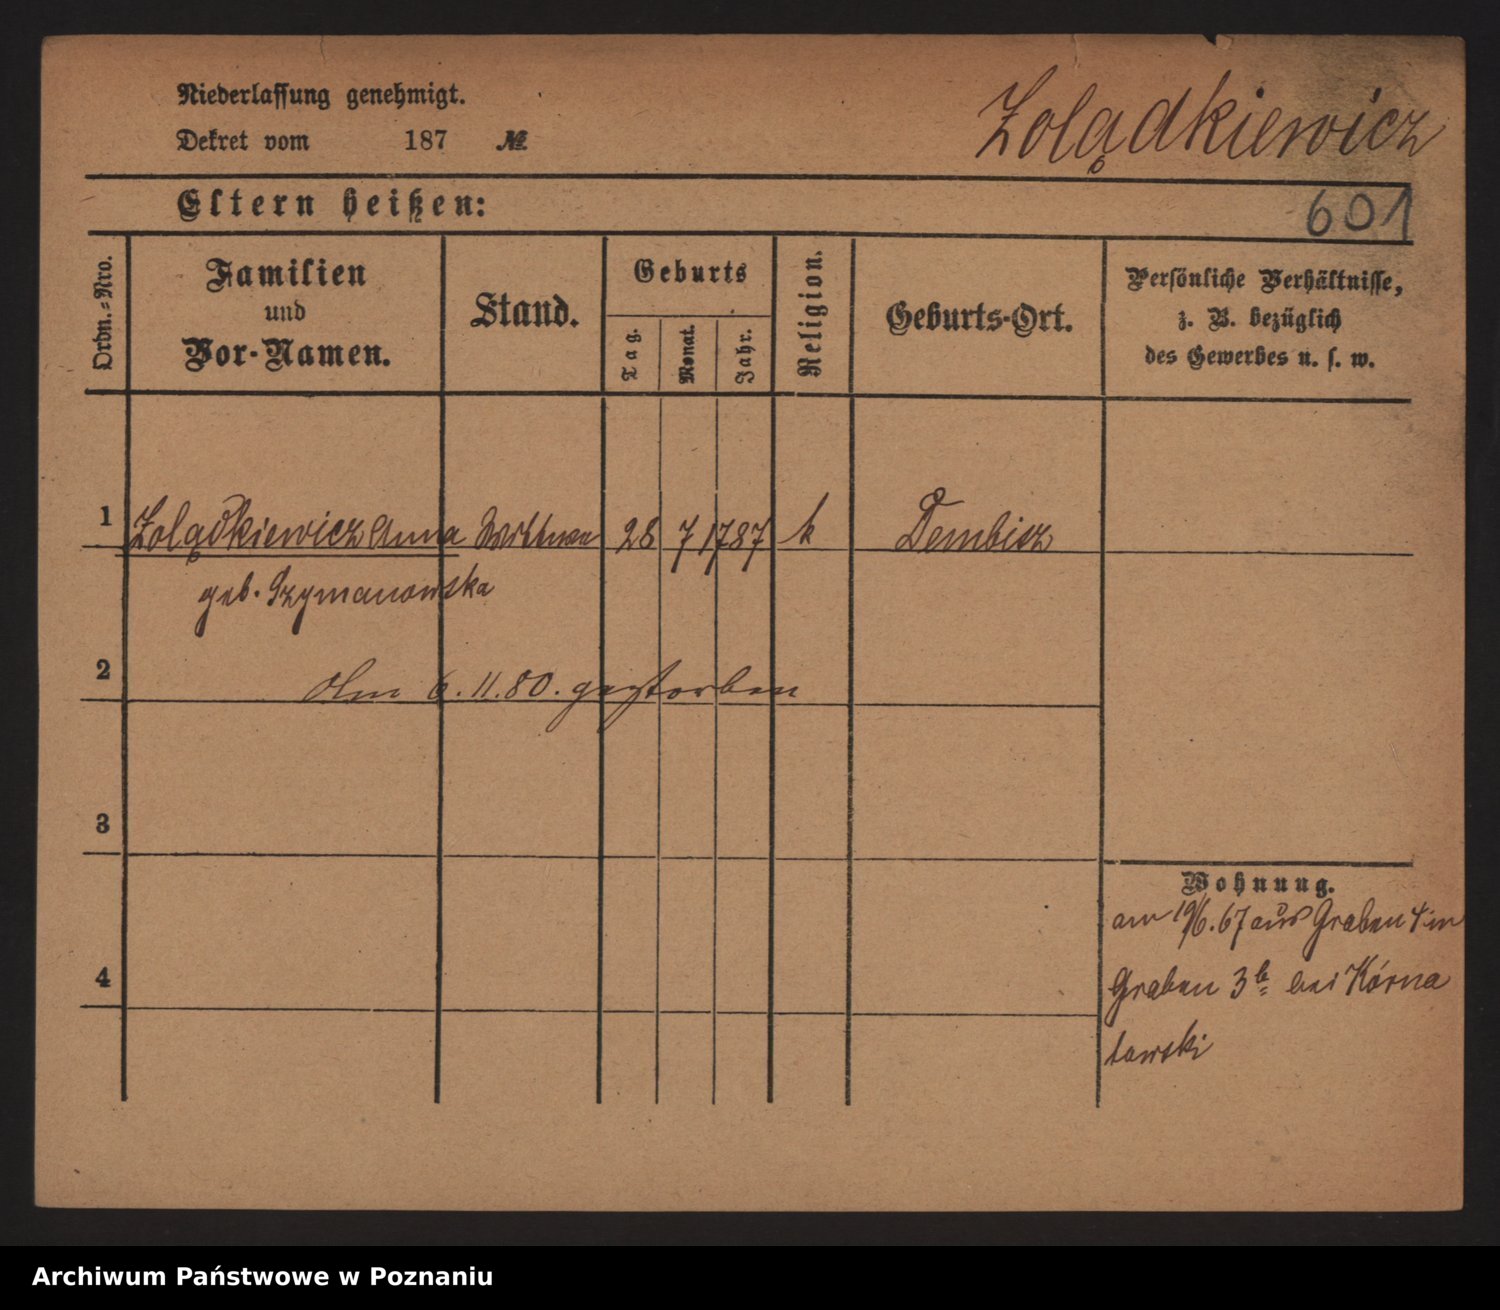 Niederlassung genehmigt.
Dekret vom 187 №
Zolądkiewicz
Eltern heißen:
601
Ordn.-Nro.
Familien
und
Vor-Namen.
Stand.
Geburts
Tag.
Monat.
Jahr.
Religion.
Geburts-Ort.
Persönliche Verhältnisse,
z. B. bezüglich
des Gewerbes u. s. w.
1 Zolądkiewicz Anna Wittwe 28 7 1787 k Dembicz
geb. Szymanowska
2 Am 6.11.80. gestorben
3
Wohnung.
am 19/6.67 aus Graben 4 in
4
Graben 3 b bei Kórna
towski
Archiwum Państwowe w Poznaniu